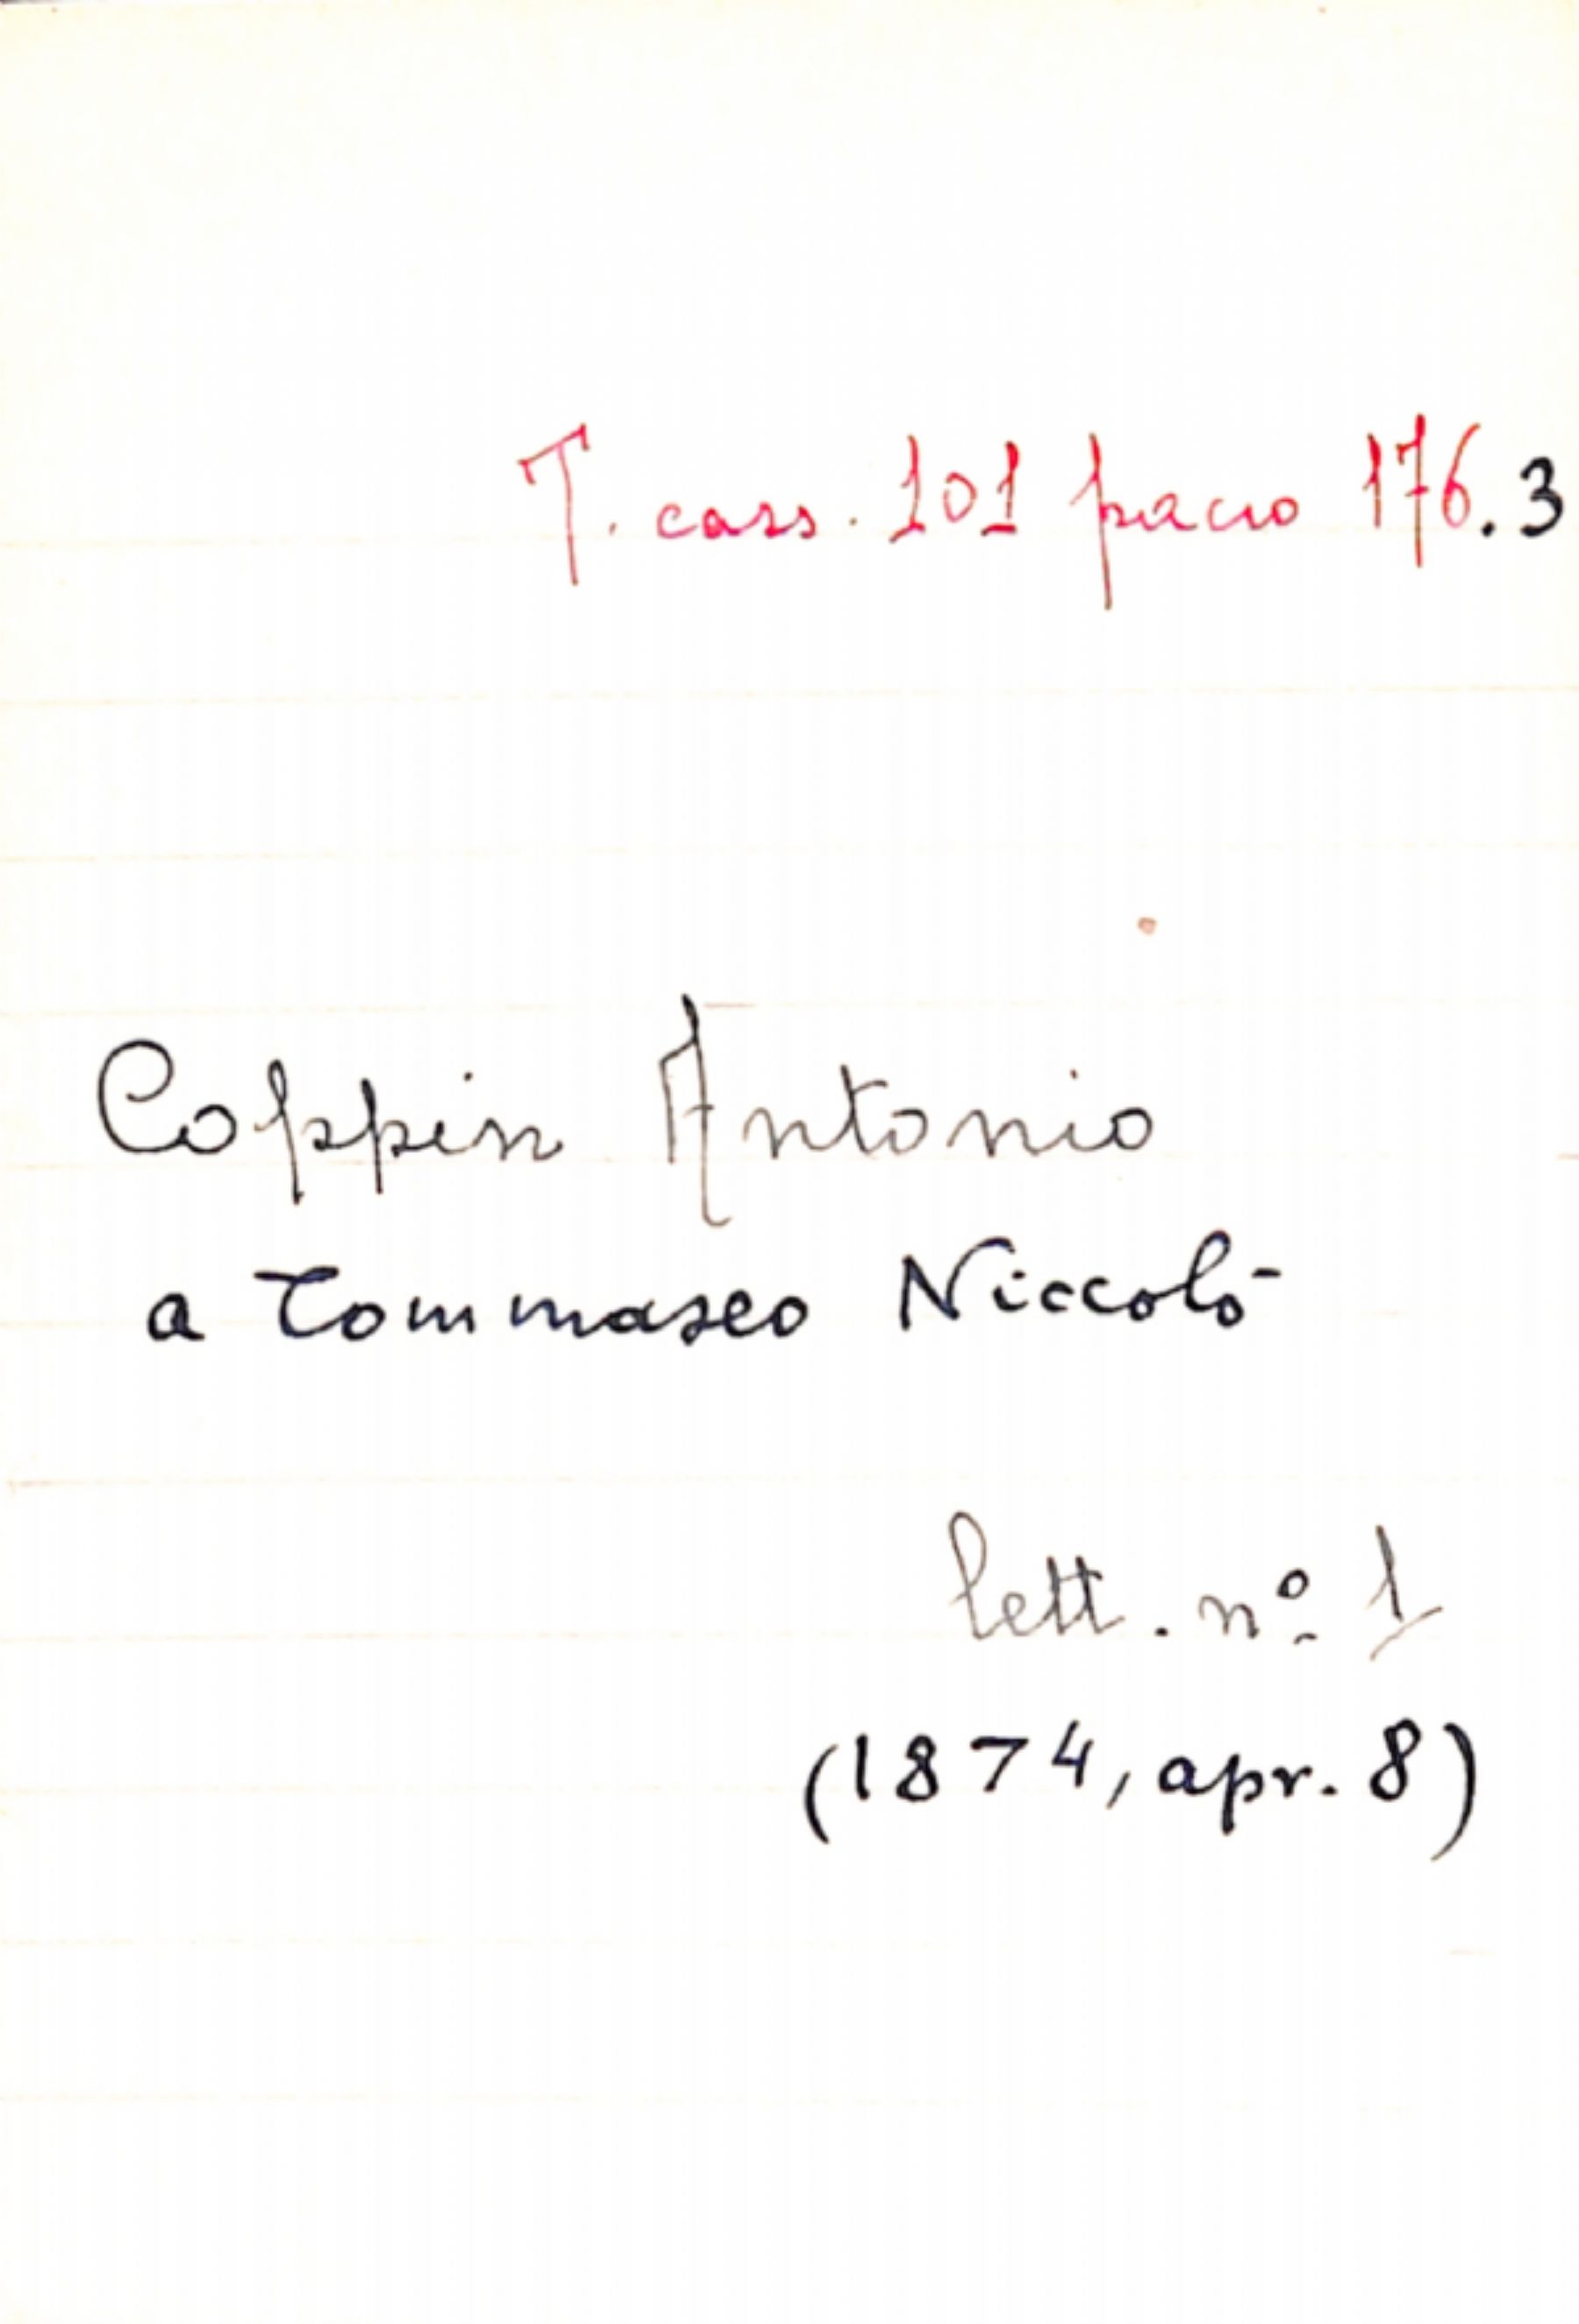 T. cass. 101 pacco 176.3
Coppin Antonio
a Tommaseo Niccolò
lett. nº 1
(1874, apr. 8)